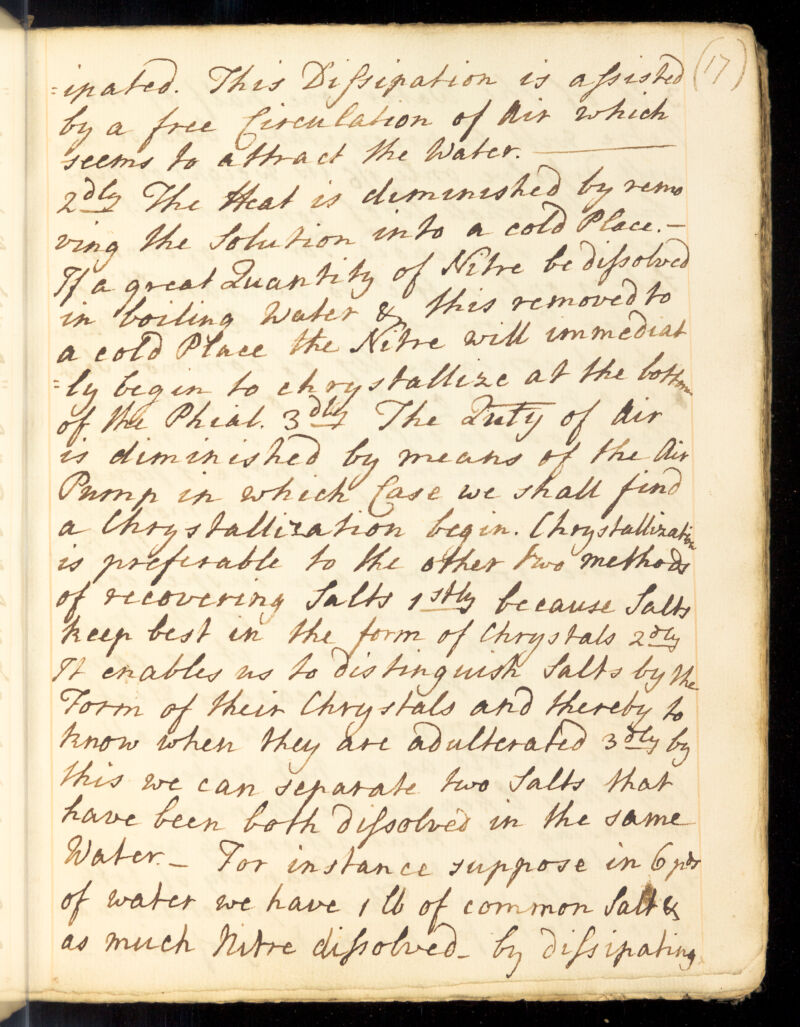 (17)
=ipated. This Dissipation is assisted
by a free Circulation of Air which
seems to attract the Water. —
2dly The Heat is diminished by remo
ving the Solution into a cold Place. –
If a great Quantity of Nitre be dissolved
in boiling Water & this removed to
a cold Place the Nitre will immediat
=ly begin to chrystallize at the bottom
of the Phial. 3dly The Quty of Air
is diminished by means of the Air
Pump in which Case we shall find
a Chrystallization begin. Chrystallization
is preferable to the other two methods
of recovering Salts 1stly because Salts
keep best in the form of Chrystals 2dly
It enables us to distinguish Salts by the
Form of their Chrystals and thereby to
know when they are adulterated 3dly by
this we can separate two Salts that
have been both dissolved in the same
Water. – For instance suppose in 6 pds
of water we have 1 lb of common Salt &
as much Nitre dissolved – by dissipating